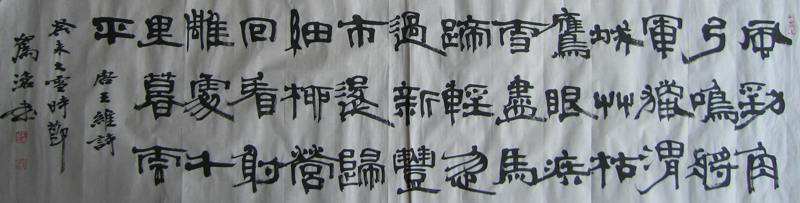 風勁角
弓鳴將
軍獵渭
城艸枯
鷹眼疾
雪盡馬
蹄輕忽
過新豐
市還歸
細柳營
回看射
雕處千
里暮雲
平
唐王維詩
癸未大雪時鄭